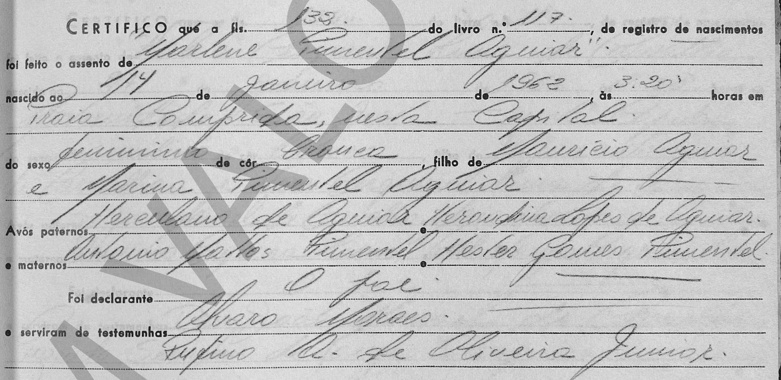 CERTIFICO que a fls. 133. do livro n.º 117. , de registro de nascimentos
foi feito o assento de "Marlene Pimentel Aguiar".
nascido ao 14 de Janeiro de 1962 , às 3:20 horas em
Praia Comprida, nesta Capital.
do sexo feminino de côr branca , filho de Mauricio Aguiar
e Marina Pimentel Aguiar.
Avós paternos Herculano de Aguiar e Herondina Lopes de Aguiar.
e maternos Antonio Mattos Pimentel e Hester Gomes Pimentel.
Foi declarante O pai.
e serviram de testemunhas Alvaro Moraes.
Rufino A. de Oliveira Junior.
VALO